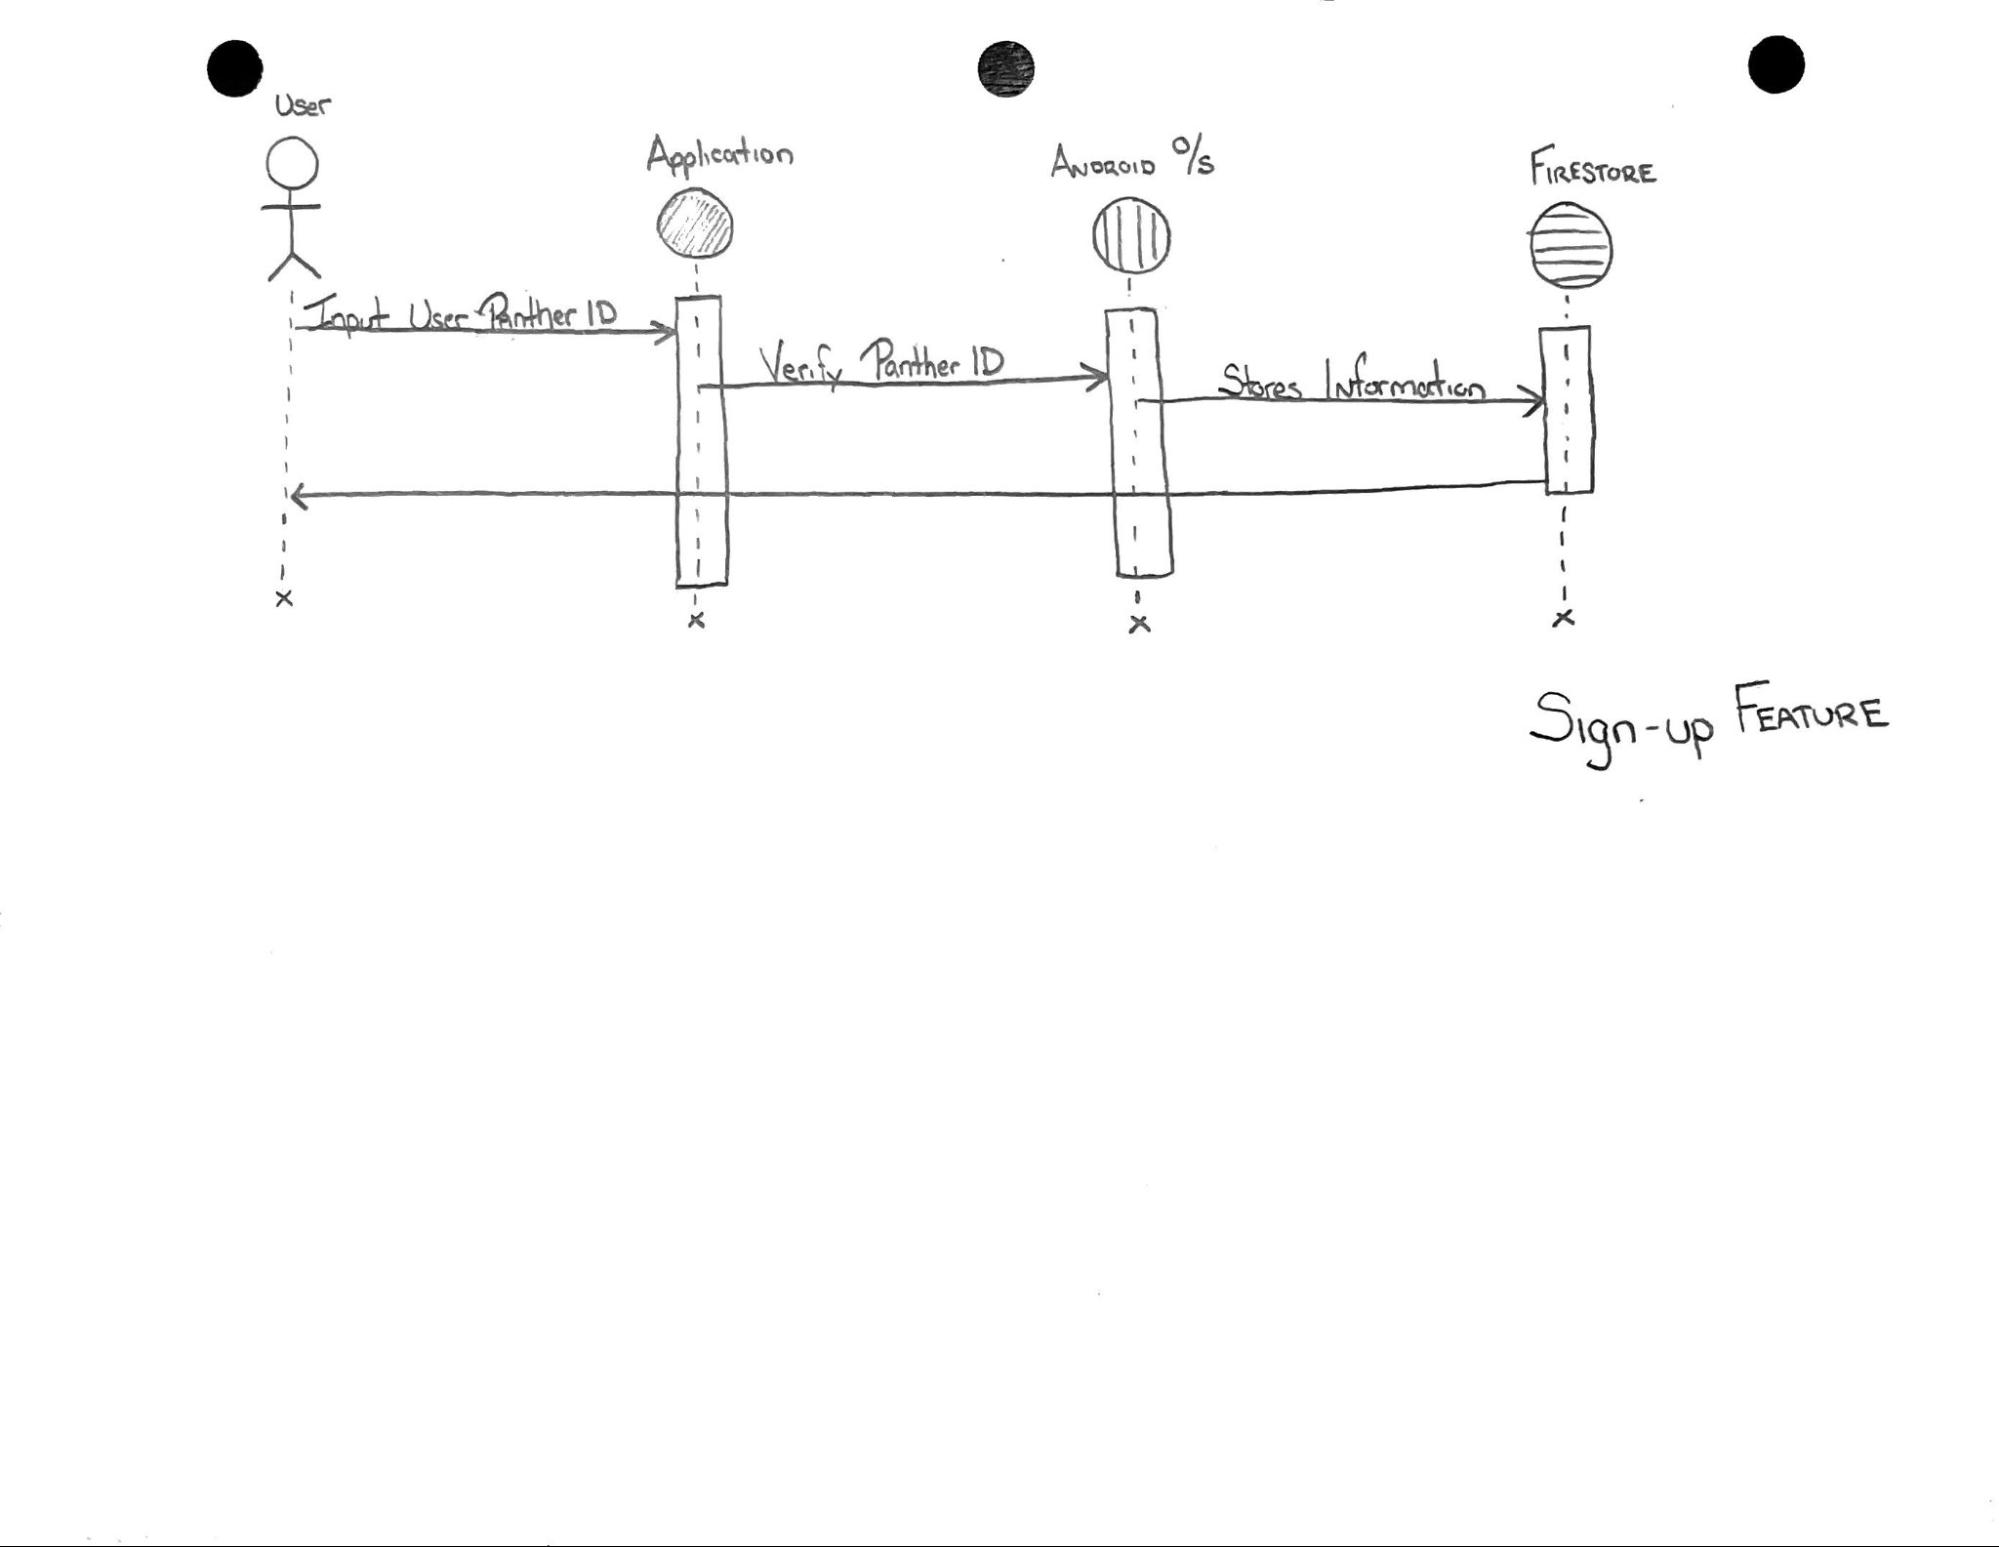 User
Application
ANDROID O/S
FIRESTORE
Input User Panther ID
Verify Panther ID
Stores Information
Sign-up FEATURE